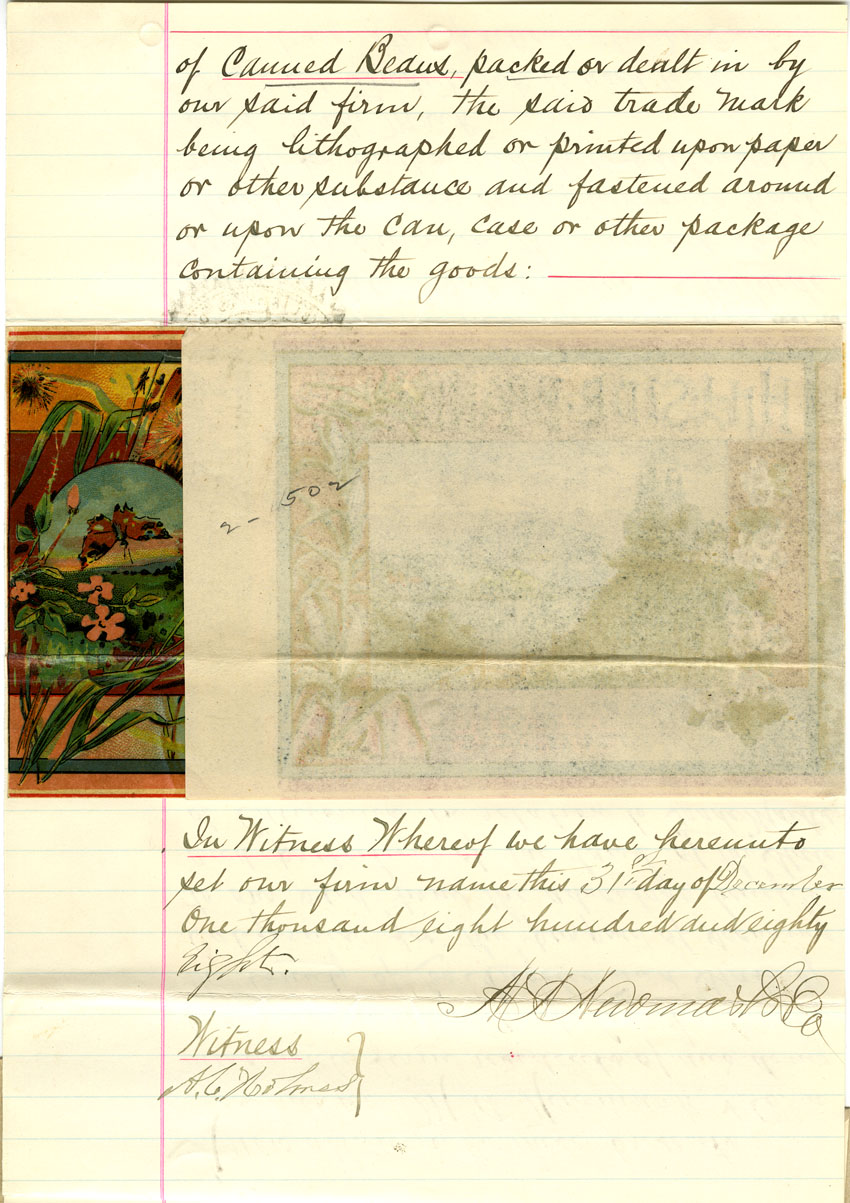 of Canned Beans, packed or dealt in by
our said firm, the said trade mark
being lithographed or printed upon paper
or other substance and fastened around
or upon the can, case or other package
containing the goods:
2-1502
In Witness Whereof we have hereunto
set our firm name this 31st day of December
One thousand eight hundred and eighty
eight.
Witness
A.C. Holmes